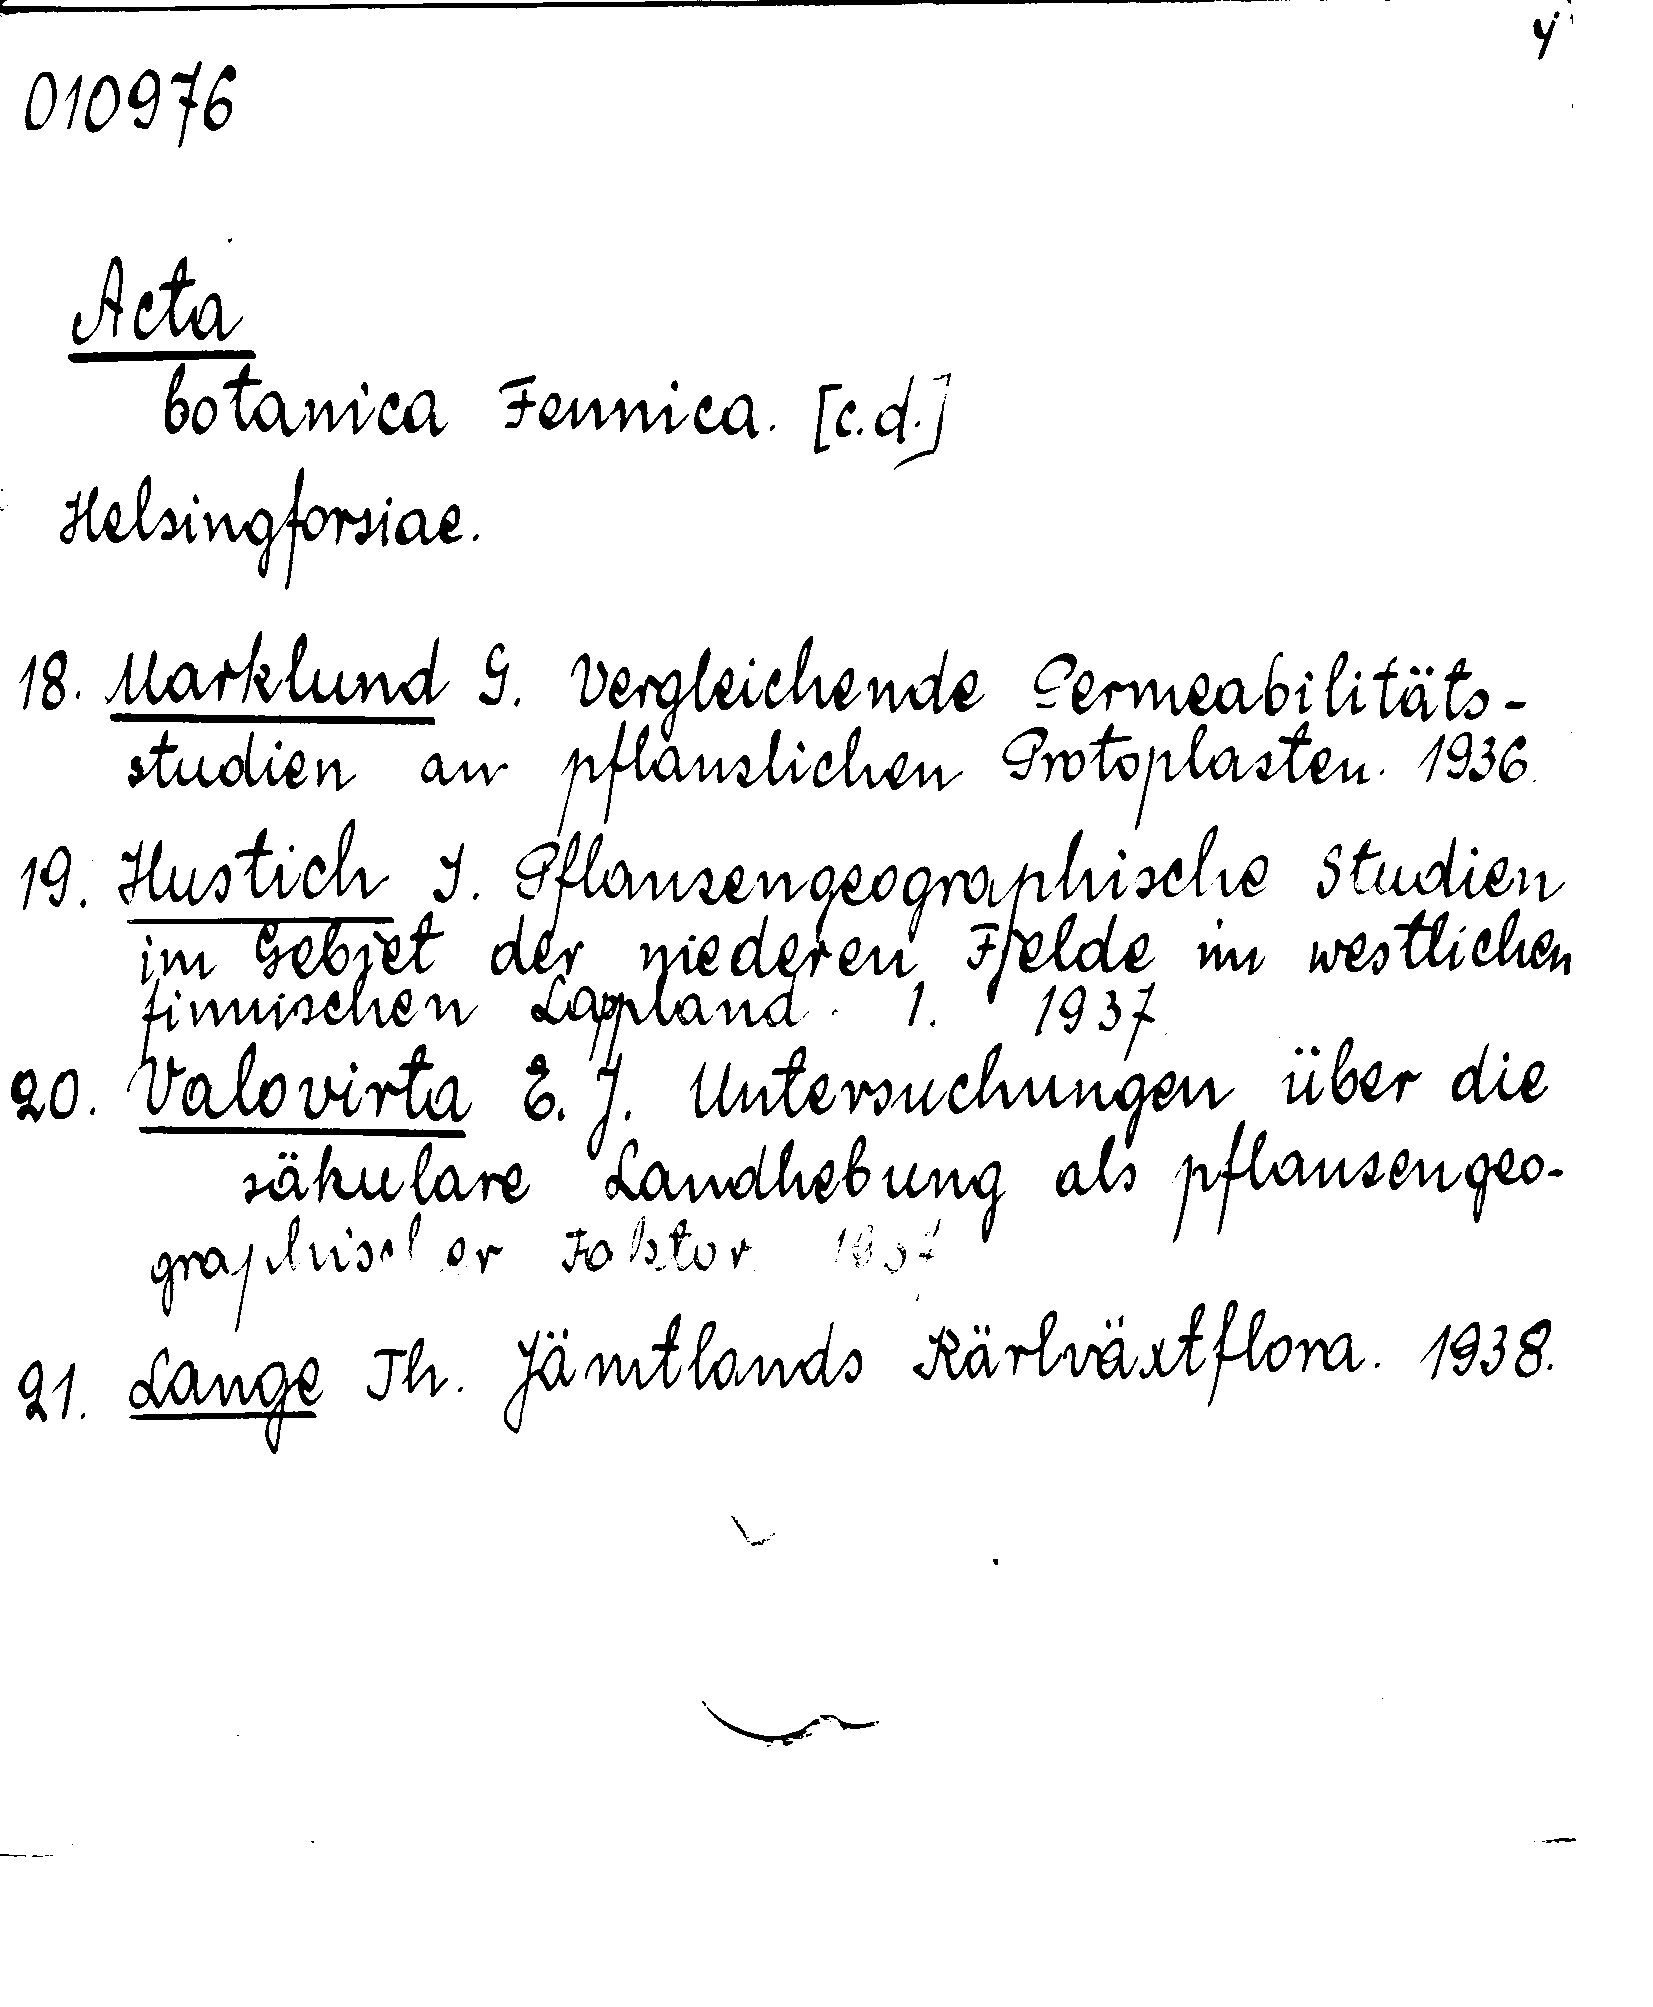 4
010976
Acta
botanica Fennica. [c.d.]
Helsingforsiae.
18. Marklund G. Vergleichende Permeabilitäts-
studien an pflanzlichen Protoplasten. 1936.
19. Hustich I. Pflanzengeographische Studien
im Gebiet der niederen Fjelde im westlichen
finnischen Lappland. 1. 1937
20. Valovirta E. J. Untersuchungen über die
säkulare Landhebung als pflanzengeo-
graphischer Faktor 1937
21. Lange Th. Jämtlands Kärlväxtflora. 1938.